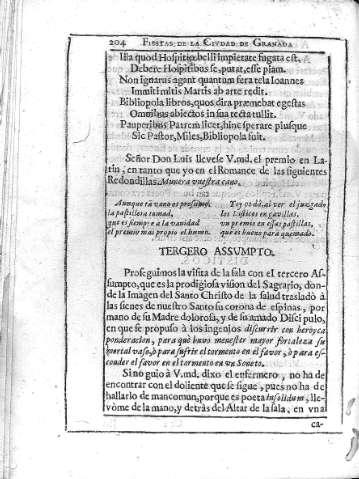 204 FIESTAS DE LA CIVDAD DE GRANADA
Illa quod Hospitio, belli impietate fugata est,
Debere Hospitibus se, putat, esse piam.
Non ignarus agant quantum fera tela Ioannes
Immiti mitis Martis ab arte redit.
Bibliopola libros, quos dira præmebat egestas
Omnibus abiectos in sua tecta tullit.
Pauperibus Patrem licet, hinc sperare piusque
Sic Pastor, Miles, Bibliopola fuit.
Señor Don Luis llevese V.md. el premio en La-
tin, en tanto que yo en el Romance de las siguientes
Redondillas. Munera vuestra cano.
Aunque tã vano es presumid,
la pastillera tomad,
que es siempre a la vanidad
el premio mas propio el humo.
los Luises en gavillas,
un premio en essas pastillas,
que es bueno para quemado.
TERCERO ASSVMPTO.
Proseguimos la visita de la sala con el tercero As-
sumpto, que es la prodigiosa vision del Sagrario, don-
de la Imagen del Santo Christo de la salud trasladò à
las sienes de nuestro Santo su corona de espinas, por
mano de su Madre dolorosa, y de su amado Discipulo,
en que se propuso à los ingenios discurrir con heroyca
ponderacion, para què huvo menester mayor fortaleza su
mortal vaso, ò para sufrir el tormento en el favor, ò para es-
conder el favor en el tormento en vn Soneto.
Si no guio à V.md. dixo el enfermero, no ha de
encontrar con el doliente que se sigue, pues no ha de
hallarlo de mancomun, porque es poeta insolidum, lle-
vòme de la mano, y detràs del Altar de la sala, en vna
ca-